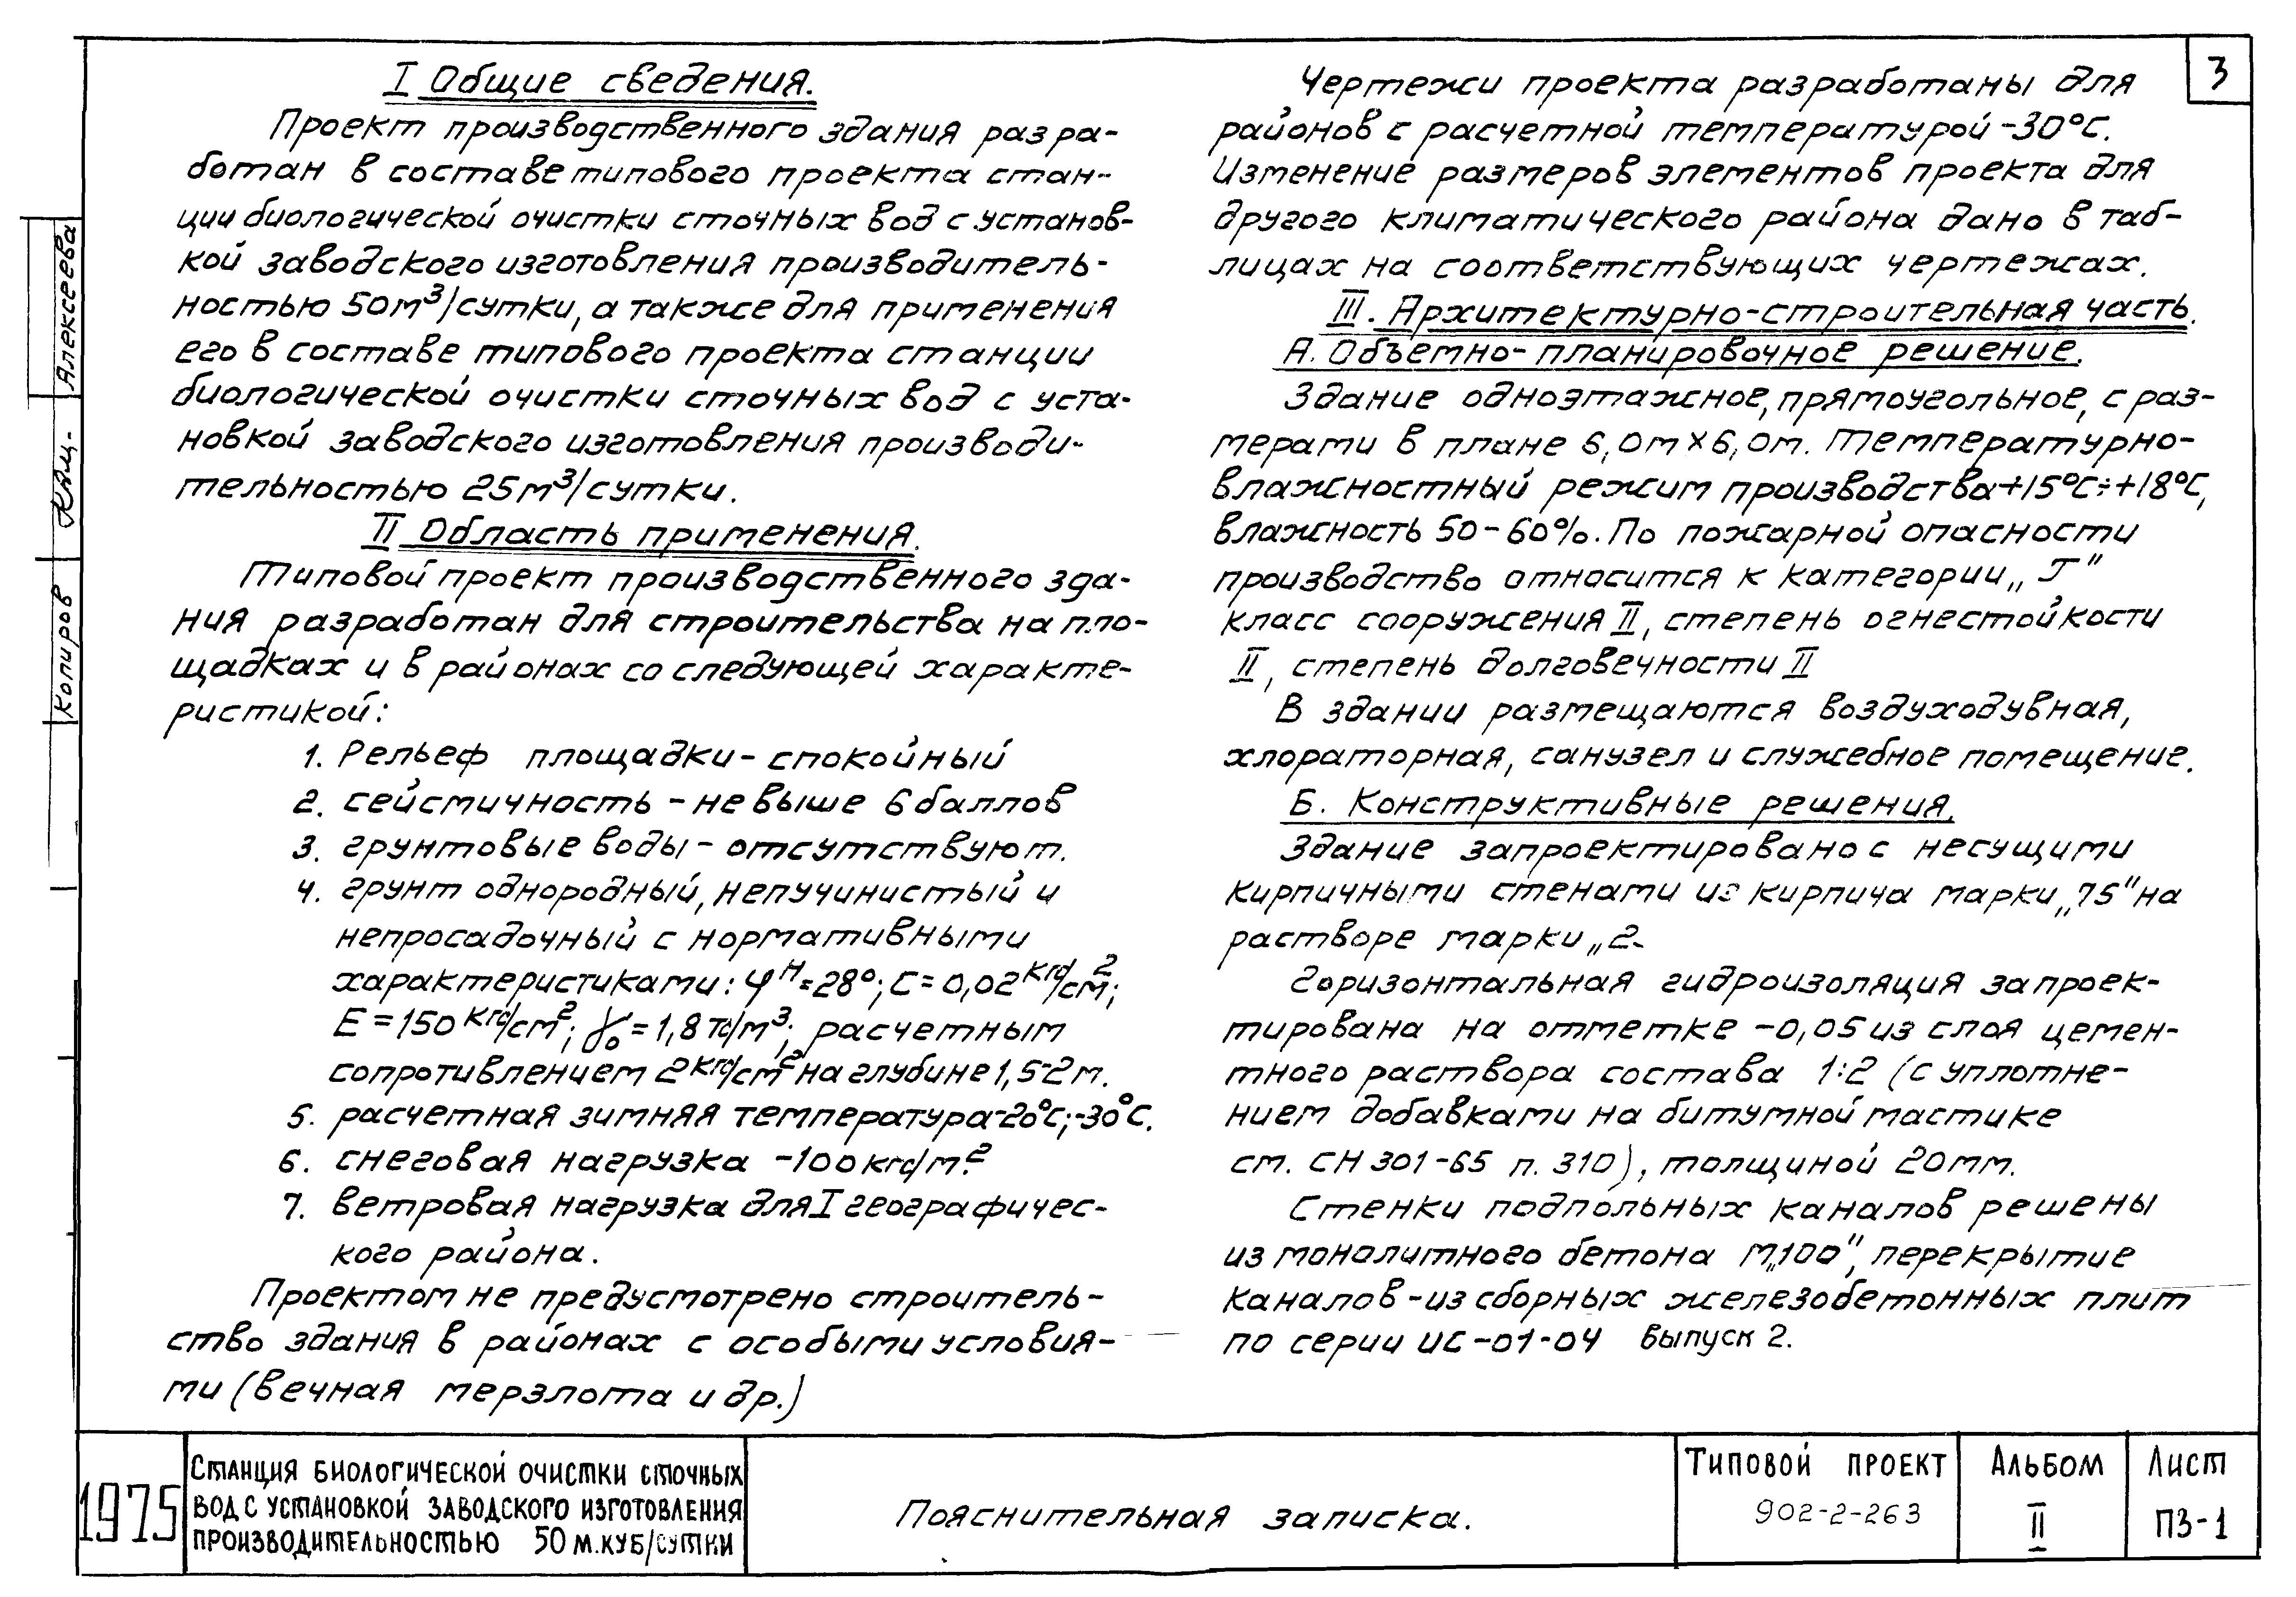 3
I Общие сведения.
Проект производственного здания разра-
ботан в составе типового проекта стан-
ции биологической очистки сточных вод с установ-
кой заводского изготовления производитель-
ностью 50м³/сутки, а также для применения
его в составе типового проекта станции
биологической очистки сточных вод с уста-
новкой заводского изготовления производи-
тельностью 25м³/сутки.
II Область применения.
Типовой проект производственного зда-
ния разработан для строительства на пло-
щадках и в районах со следующей характе-
ристикой:
1. Рельеф площадки - спокойный
2. сейсмичность - не выше 6 баллов
3. грунтовые воды - отсутствуют.
4. грунт однородный, непучинистый и
непросадочный с нормативными
характеристиками: φᴴ=28°; С=0,02 кгс/см²;
Е=150 кгс/см²; γ₀=1,8 тс/м³; расчетным
сопротивлением 2 кгс/см² на глубине 1,5-2м.
5. расчетная зимняя температура-20°С;-30°С.
6. снеговая нагрузка -100 кгс/м².
7. ветровая нагрузка для I географичес-
кого района.
Проектом не предусмотрено строитель-
ство здания в районах с особыми условия-
ми (вечная мерзлота и др.)
Чертежи проекта разработаны для
районов с расчетной температурой -30°С.
Изменение размеров элементов проекта для
другого климатического района дано в таб-
лицах на соответствующих чертежах.
III. Архитектурно-строительная часть.
А. Объемно-планировочное решение.
Здание одноэтажное, прямоугольное, с раз-
мерами в плане 6,0м х 6,0м. Температурно-
влажностный режим производства +15°С÷+18°С,
влажность 50-60%. По пожарной опасности
производство относится к категории „Г"
класс сооружения II, степень огнестойкости
II, степень долговечности II
В здании размещаются воздуходувная,
хлораторная, санузел и служебное помещение.
Б. Конструктивные решения.
Здание запроектировано с несущими
кирпичными стенами из кирпича марки „75" на
растворе марки „2
Горизонтальная гидроизоляция запроек-
тирована на отметке -0,05 из слоя цемен-
тного раствора состава 1:2 (с уплотне-
нием добавками на битумной мастике
см. СН 301-65 п. 310), толщиной 20мм.
Стенки подпольных каналов решены
из монолитного бетона М„100", перекрытие
каналов - из сборных железобетонных плит
по серии ИС-01-04 выпуск 2.
Алексеева
Копиров
1975
Станция биологической очистки сточных
вод с установкой заводского изготовления
производительностью 50 м.куб/сутки
Пояснительная записка.
Типовой проект
902-2-263
Альбом
II
Лист
ПЗ-1